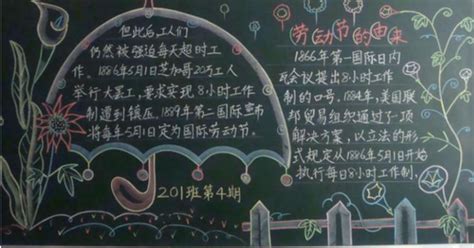 但此后,工人们
仍然被强迫每天超时工
作。1886年5月1日芝加哥20万工人
举行大罢工,要求实现8小时工作
制遭到镇压。1889年第二国际宣布
将每年5月1日定为国际劳动节。
201班第4期
劳动节的由来
1866年第一国际日内
瓦会议提出8小时工作
制的口号。1884年,美国联
邦贸易组织通过了一项
解决方案,以立法的形
式规定从1886年5月1日开始
执行每日8小时工作制.